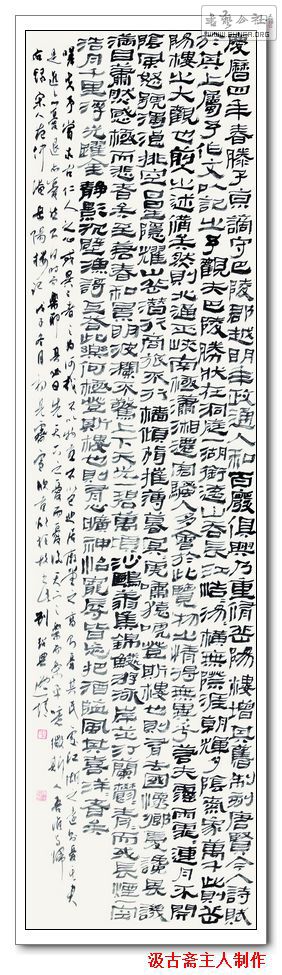 慶曆四年春滕子京謫守巴陵郡越明年政通人和百廢俱興乃重脩岳陽樓增其舊制刻唐賢今人詩賦
於其上屬予作文以記之予觀夫巴陵勝狀在洞庭一湖銜遠山吞長江浩浩湯湯橫無際涯朝暉夕陰氣象萬千此則岳
陽樓之大觀也前人之述備矣然則北通巫峽南極瀟湘遷客騷人多會於此覽物之情得無異乎若夫霪雨霏霏連月不開
陰風怒號濁浪排空日星隱耀山岳潛形商旅不行檣傾楫摧薄暮冥冥虎嘯猿啼登斯樓也則有去國懷鄉憂讒畏譏
滿目蕭然感極而悲者矣至若春和景明波瀾不驚上下天光一碧萬頃沙鷗翔集錦鱗游泳岸芷汀蘭鬱鬱青青而或長煙一空
浩月千里浮光躍金靜影沉璧漁歌互答此樂何極登斯樓也則有心曠神怡寵辱皆忘把酒臨風其喜洋洋者矣
嗟夫予嘗求古仁人之心或異二者之為何哉不以物喜不以己悲居廟堂之高則憂其民處江湖之遠則憂其君
是進亦憂退亦憂然則何時而樂耶其必曰先天下之憂而憂後天下之樂而樂乎噫微斯人吾誰與歸
右錄宋人范仲淹岳陽樓記
汲古斋主人制作